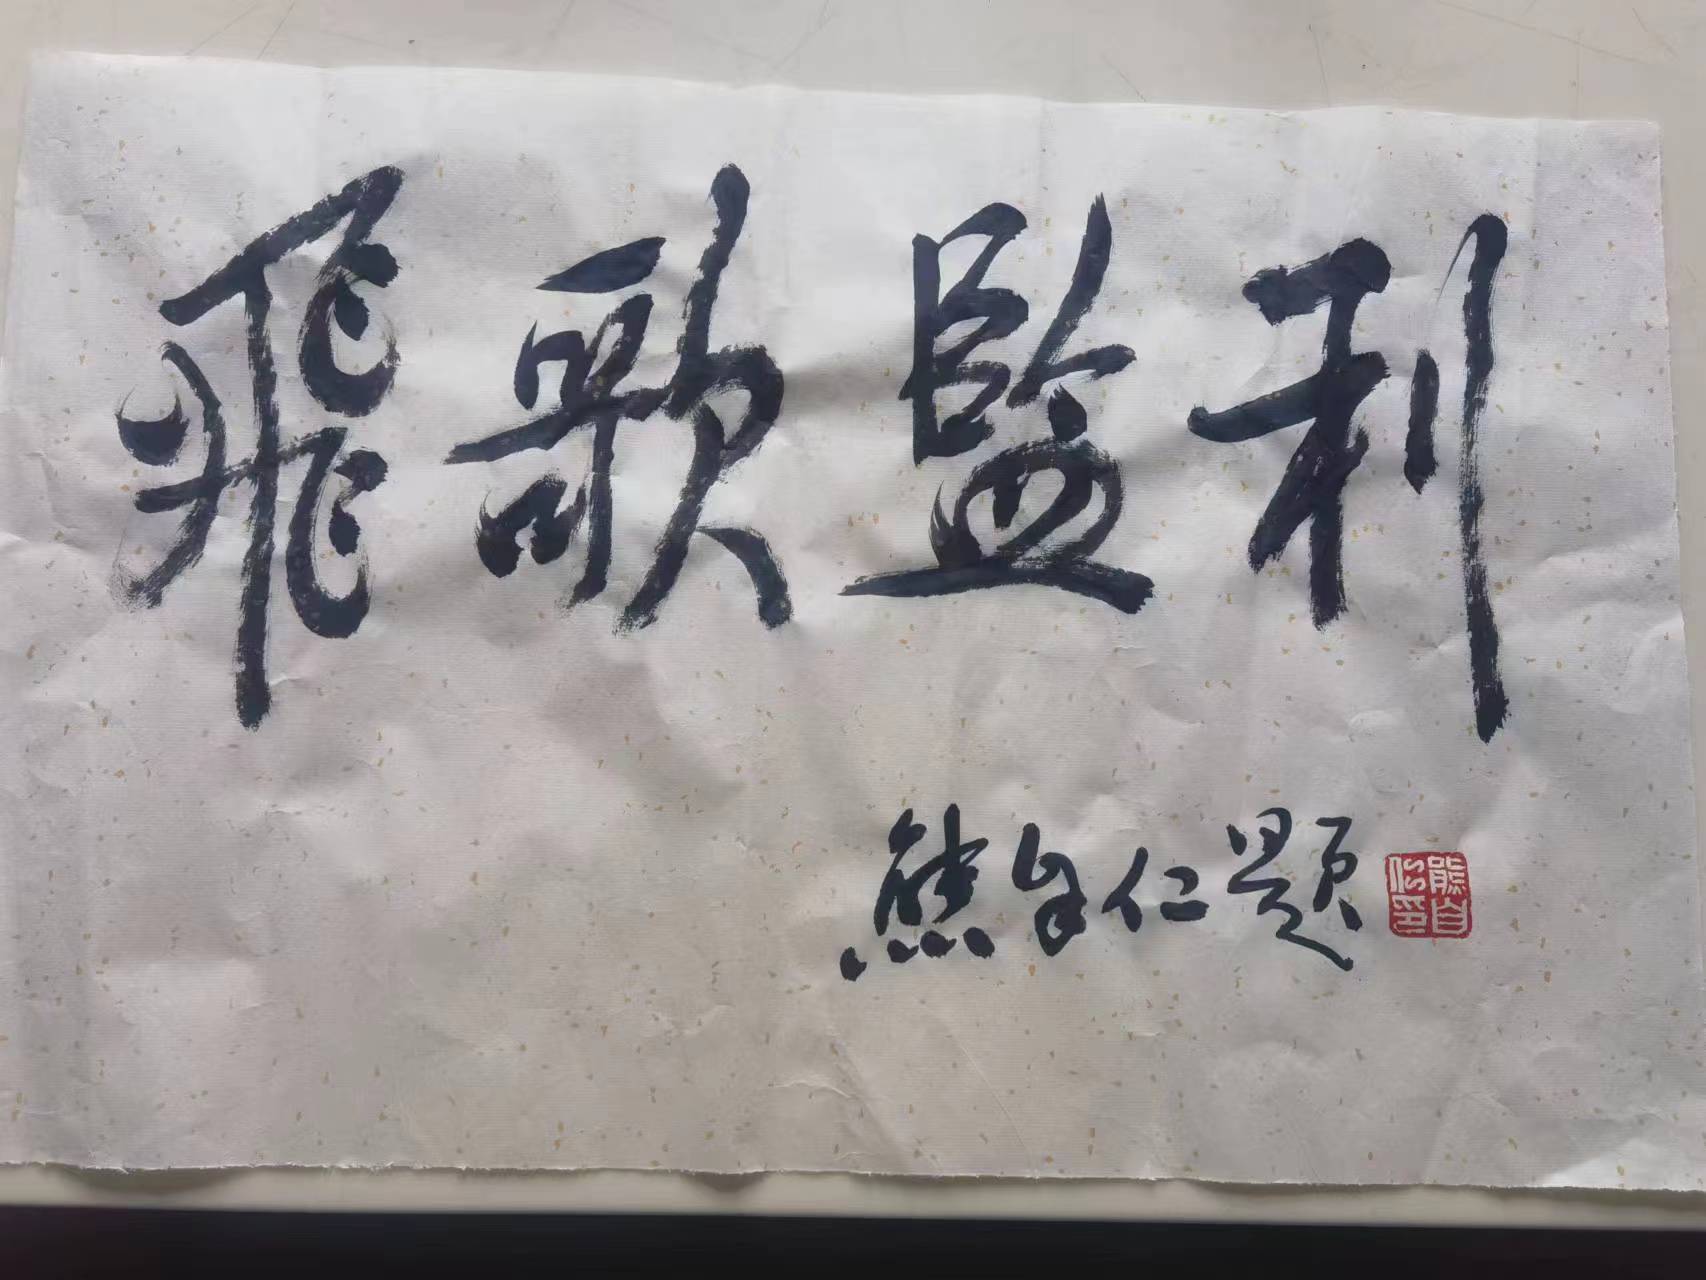 飛歌監利
熊自仁题
熊自仁印